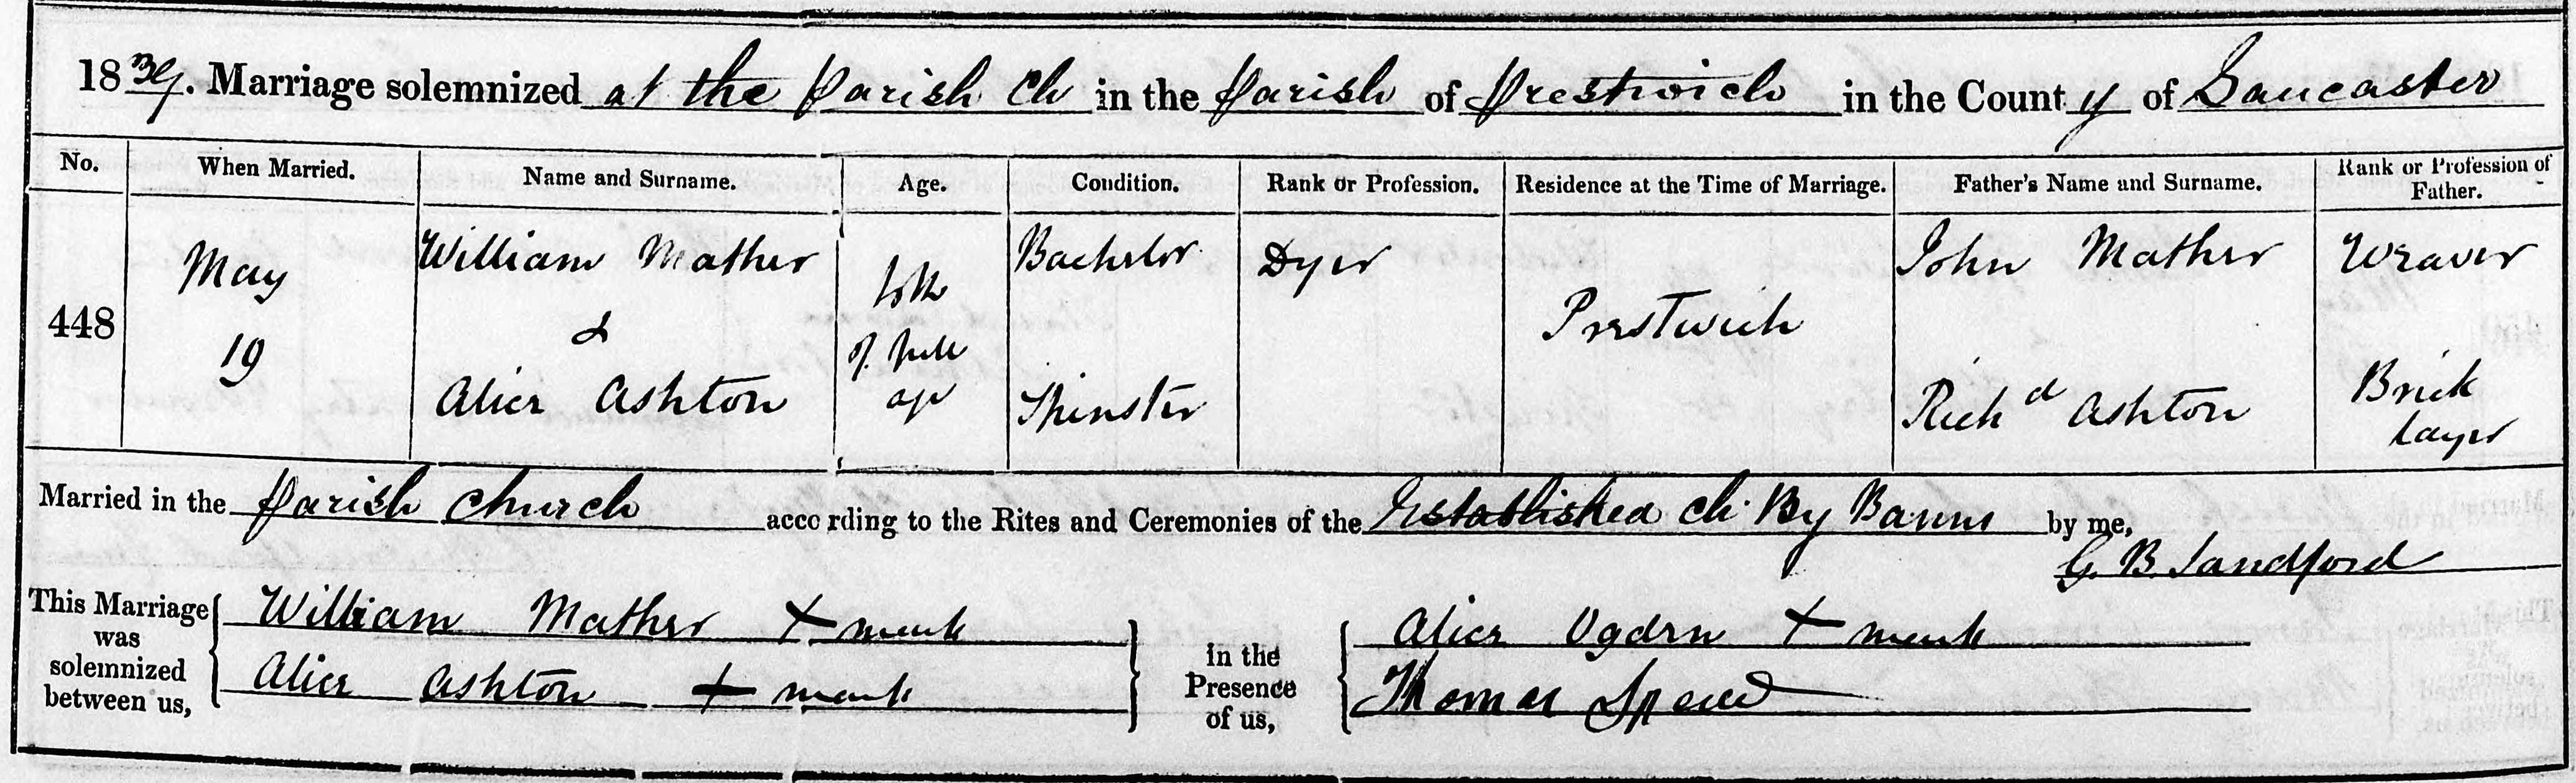 1839. Marriage solemnized at the Parish Ch in the Parish of Prestwich in the County of Lancaster
No. When Married. Name and Surname. Age. Condition. Rank or Profession. Residence at the Time of Marriage. Father's Name and Surname. Rank or Profession of Father.
448 May 19 William Mather & Alice Ashton both of full age Bachelor Spinster Dyer Prestwich John Mather Richd Ashton Weaver Brick layer
Married in the Parish Church according to the Rites and Ceremonies of the Established Ch. By Banns by me,
G. B. Sandford
This Marriage was solemnized between us,
William Mather + mark
Alice Ashton + mark
In the Presence of us,
Alice Ogden + mark
Thomas